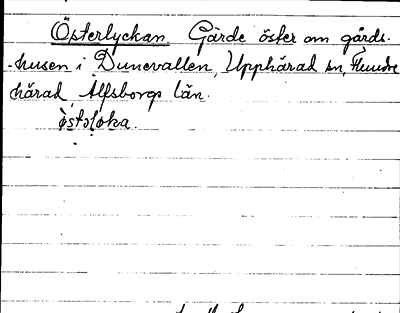 Österlyckan Gärde öster om gårds-
-husen i Dunevallen, Upphärad sn, Flundre
härad, Älfsborgs län.